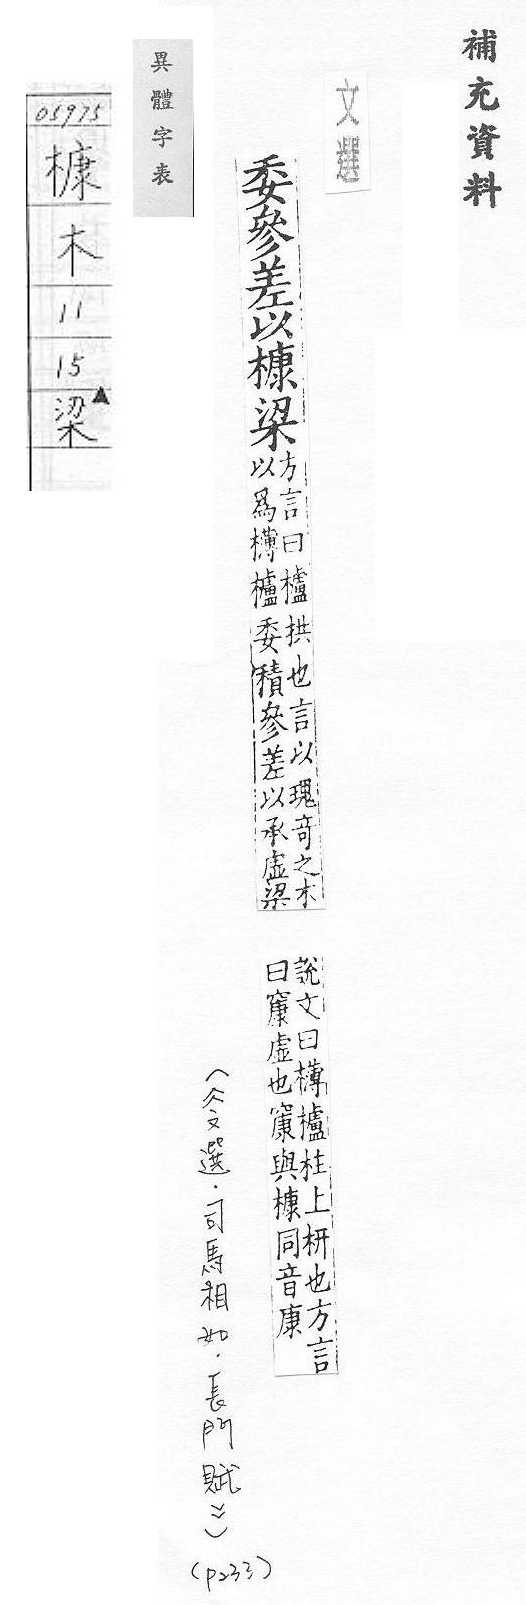 補充資料
文選
委參差以槺梁
方言曰櫨拱也言以瑰奇之木
以爲欂櫨委積參差以承虛梁
說文曰欂櫨柱上枅也方言
曰㝩虛也㝩與槺同音康
(《文選.司馬相如.長門賦》)
(P233)
異體字表
05975
槺
木
11
15
梁